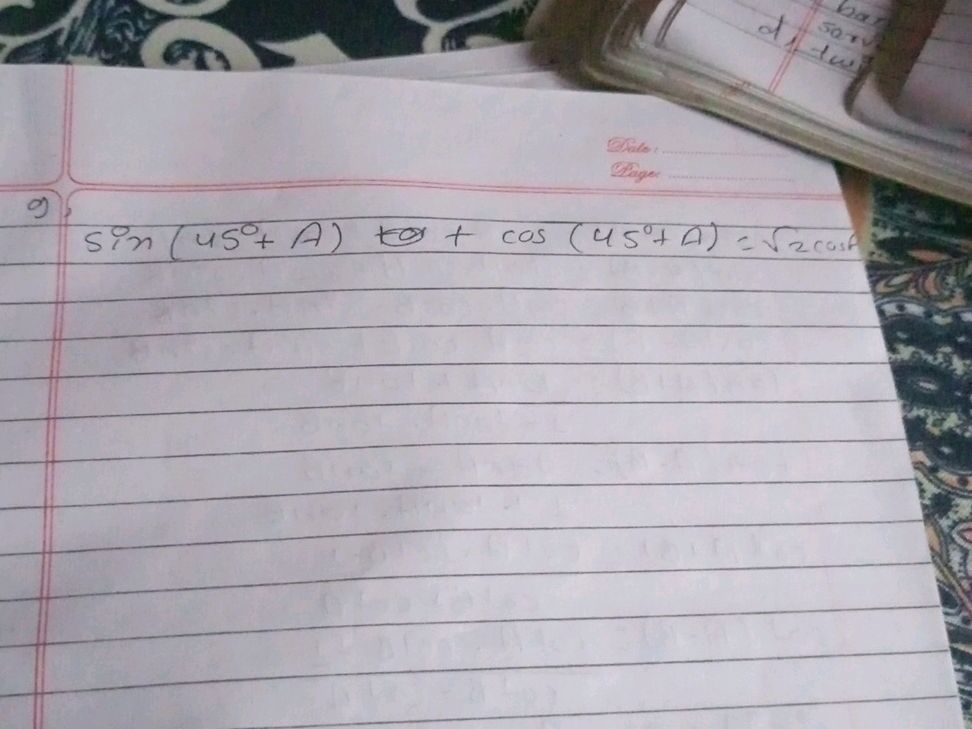 bar
serv
d, tw
Date:
Page:
9,
sin (45°+ A) + cos (45°+ A) = √2 cosA